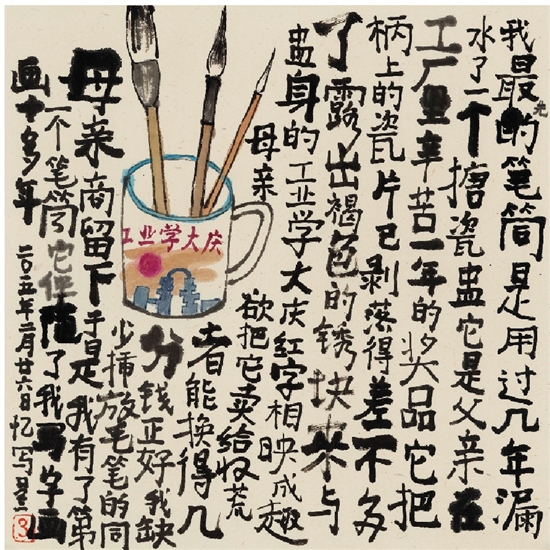 我最先的笔筒是用过几年漏
水了一个搪瓷盅它是父亲在
工厂里辛苦一年的奖品它把
柄上的瓷片已剥落得差不多
了露出褐色的锈块来与
盅身的工业学大庆红字相映成趣
母亲欲把它卖给收荒
者能换得几
分钱正好我缺
少插放毛笔的同
母亲商留下于是我有了第
一个笔筒它伴随了我写字画
画十多年 二〇一五年二月廿六日忆写
工业学大庆